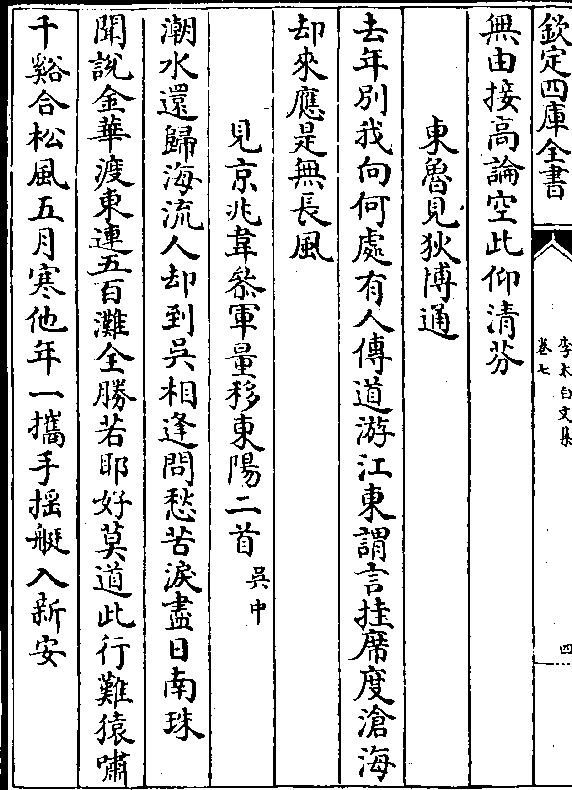 欽定四庫全書
李太白文集
卷七
四
無由接高論空此仰清芬
東魯見狄博通
去年別我向何處有人傳道游江東謂言挂席度滄海
却來應是無長風
見京兆韋叅軍量移東陽二首吳中
潮水還歸海流人却到吳相逢問愁苦淚盡日南珠
聞說金華渡東連五百灘全勝若耶好莫道此行難猿嘯
千谿合松風五月寒他年一攜手揺艇入新安